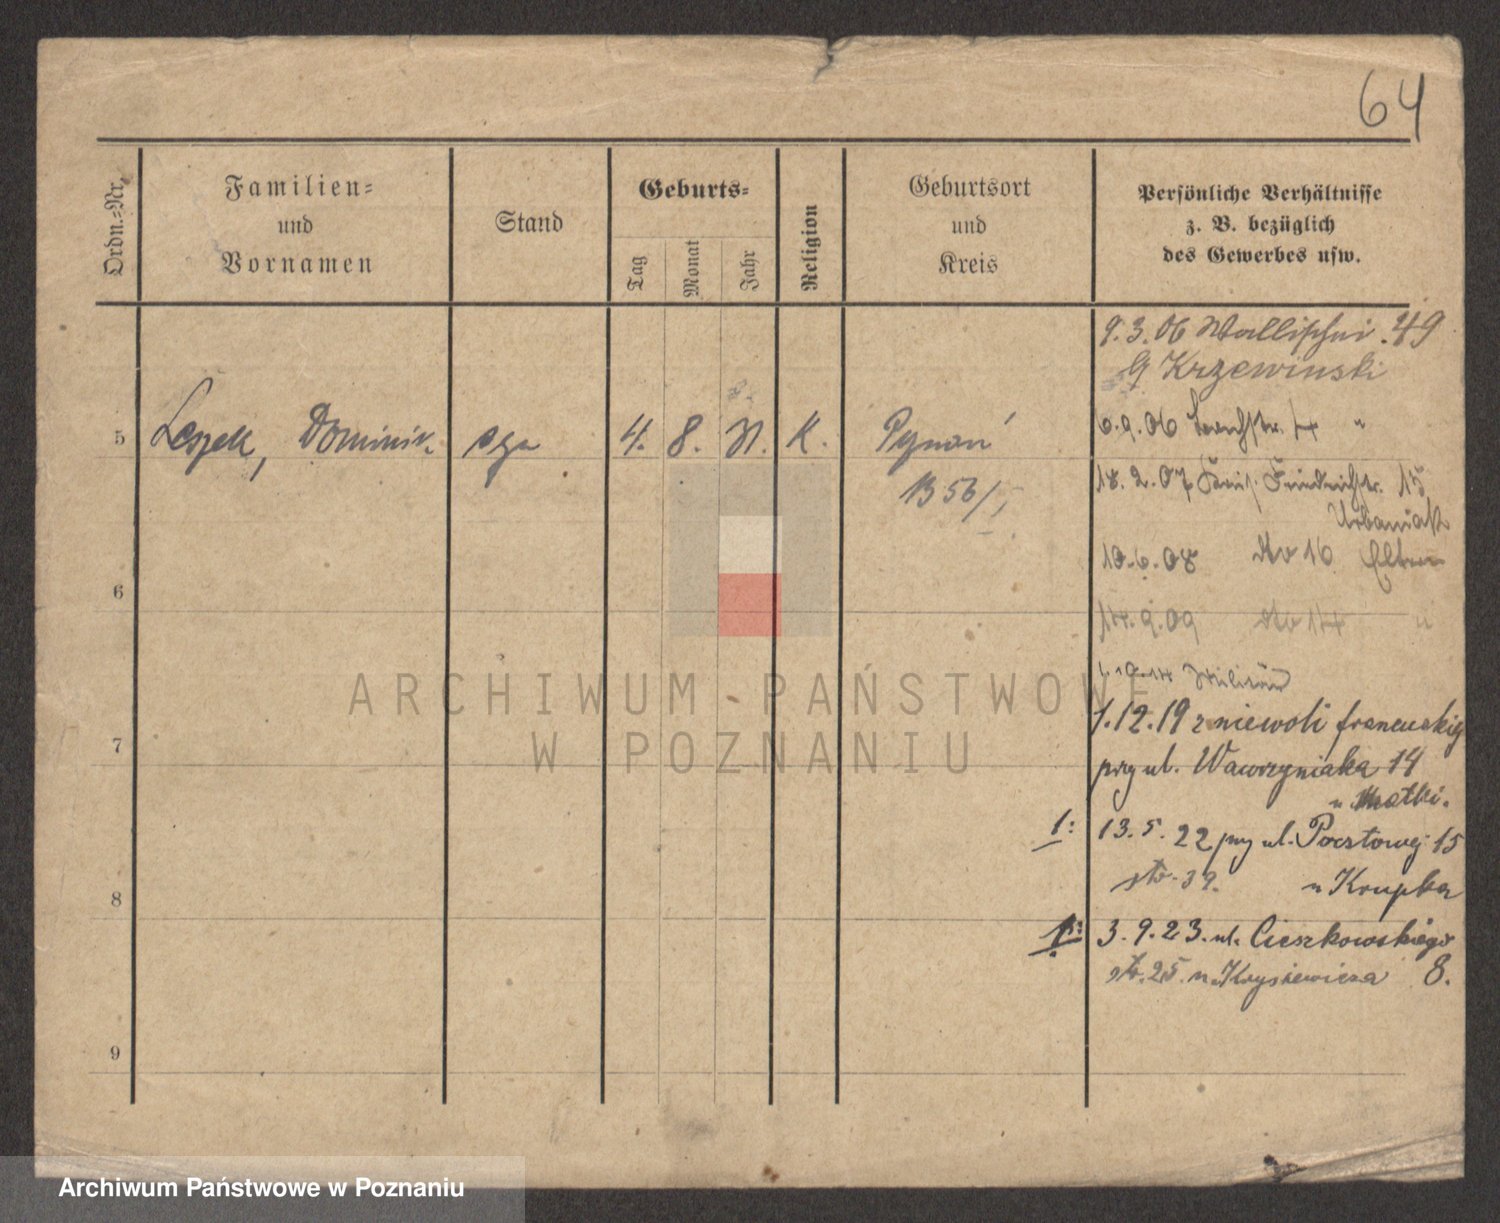 64
Ordn.=Nr.
Familien=
und
Vornamen
Stand
Geburts=
Tag
Monat
Jahr
Religion
Geburtsort
und
Kreis
Persönliche Verhältnisse
z. B. bezüglich
des Gewerbes usw.
9.3.06 Wallischei .49
Krzewinski
5
Leszek, Dominik
4. 8. K.
Poznań
6.9.06 "
18.2.07 Friedrichstr. 15
Urbaniak
10.6.08 dto 16 Eltern
6
14.9.09 dto 14 "
1.10.14 Militär
ARCHIWUM PAŃSTWOWE
W POZNANIU
1.12.19 z niewoli francuskiej
7
przy ul. Wawrzyniaka 14
u Matki.
1: 13.5.22 przy ul. Pocztowej 15
str. 39. u Krupka
8
1: 3.9.23. ul. Cieszkowskiego
str. 25. u Krysiewicza 8.
9
Archiwum Państwowe w Poznaniu